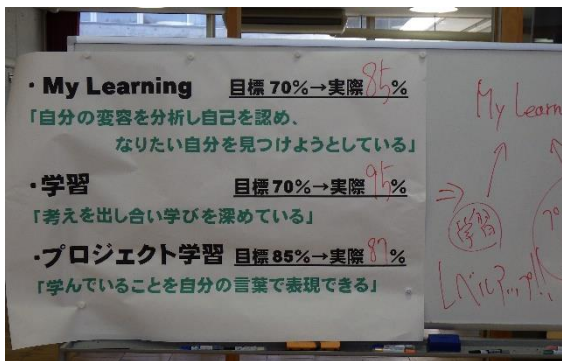 ・My Learning 目標 70%→実際85%
「自分の変容を分析し自己を認め、
なりたい自分を見つけようとしている」
・学習 目標 70%→実際95%
「考えを出し合い学びを深めている」
・プロジェクト学習 目標 85%→実際87%
「学んでいることを自分の言葉で表現できる」
My Learn
⇒ 学習
プロ
レベルアップ!!